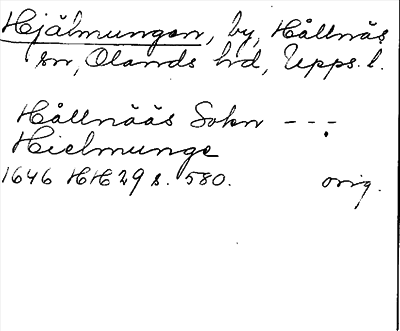 Hjälmungen, by, Hållnäs
sn, Olands hd, Upps. l.
Hållnääs Sokn - - -
Hielmunge
1646 HH 29 s. 580. orig.